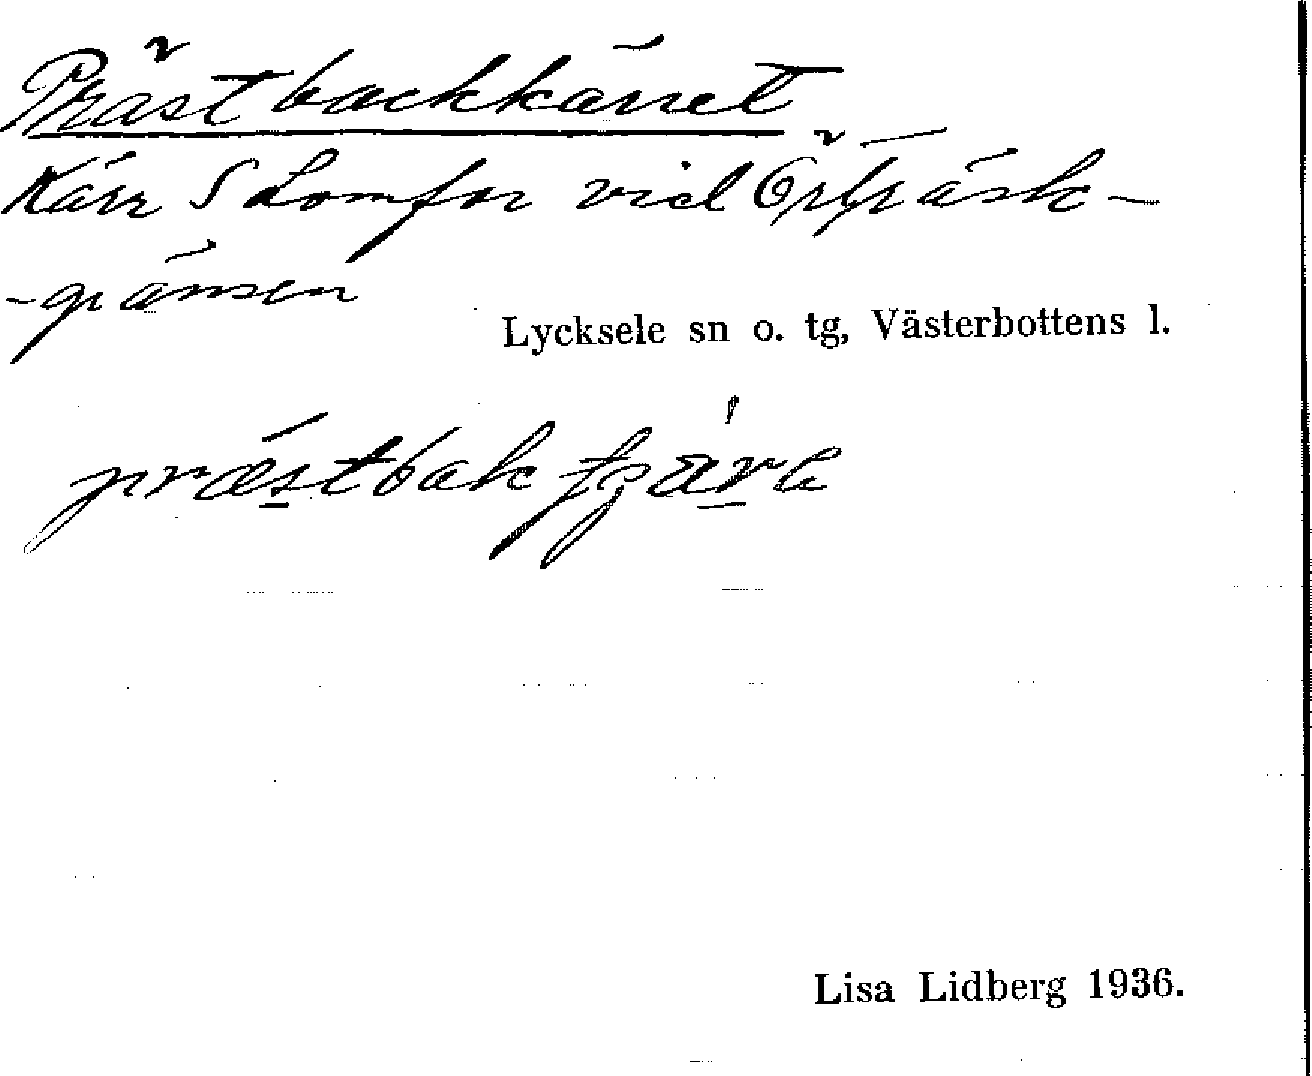 Prästbackkärret
Kärr S Lomfor vid Örträsk-
-gränsen
Lycksele sn o. tg, Västerbottens l.
Lisa Lidberg 1936.